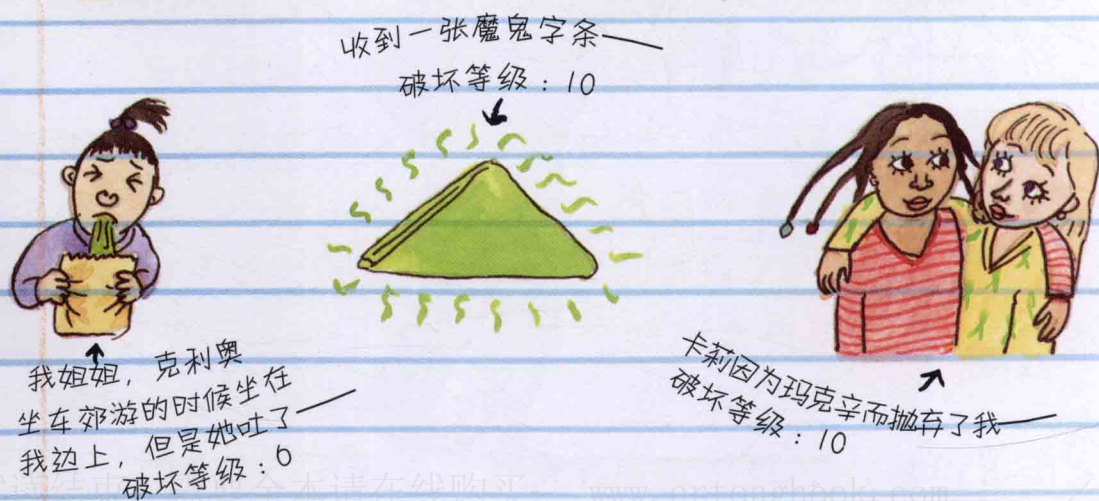 收到一张魔鬼字条——
破坏等级：10
我姐姐，克利奥
坐车郊游的时候坐在
我边上，但是她吐了——
破坏等级：6
卡莉因为玛克辛而抛弃了我——
破坏等级：10